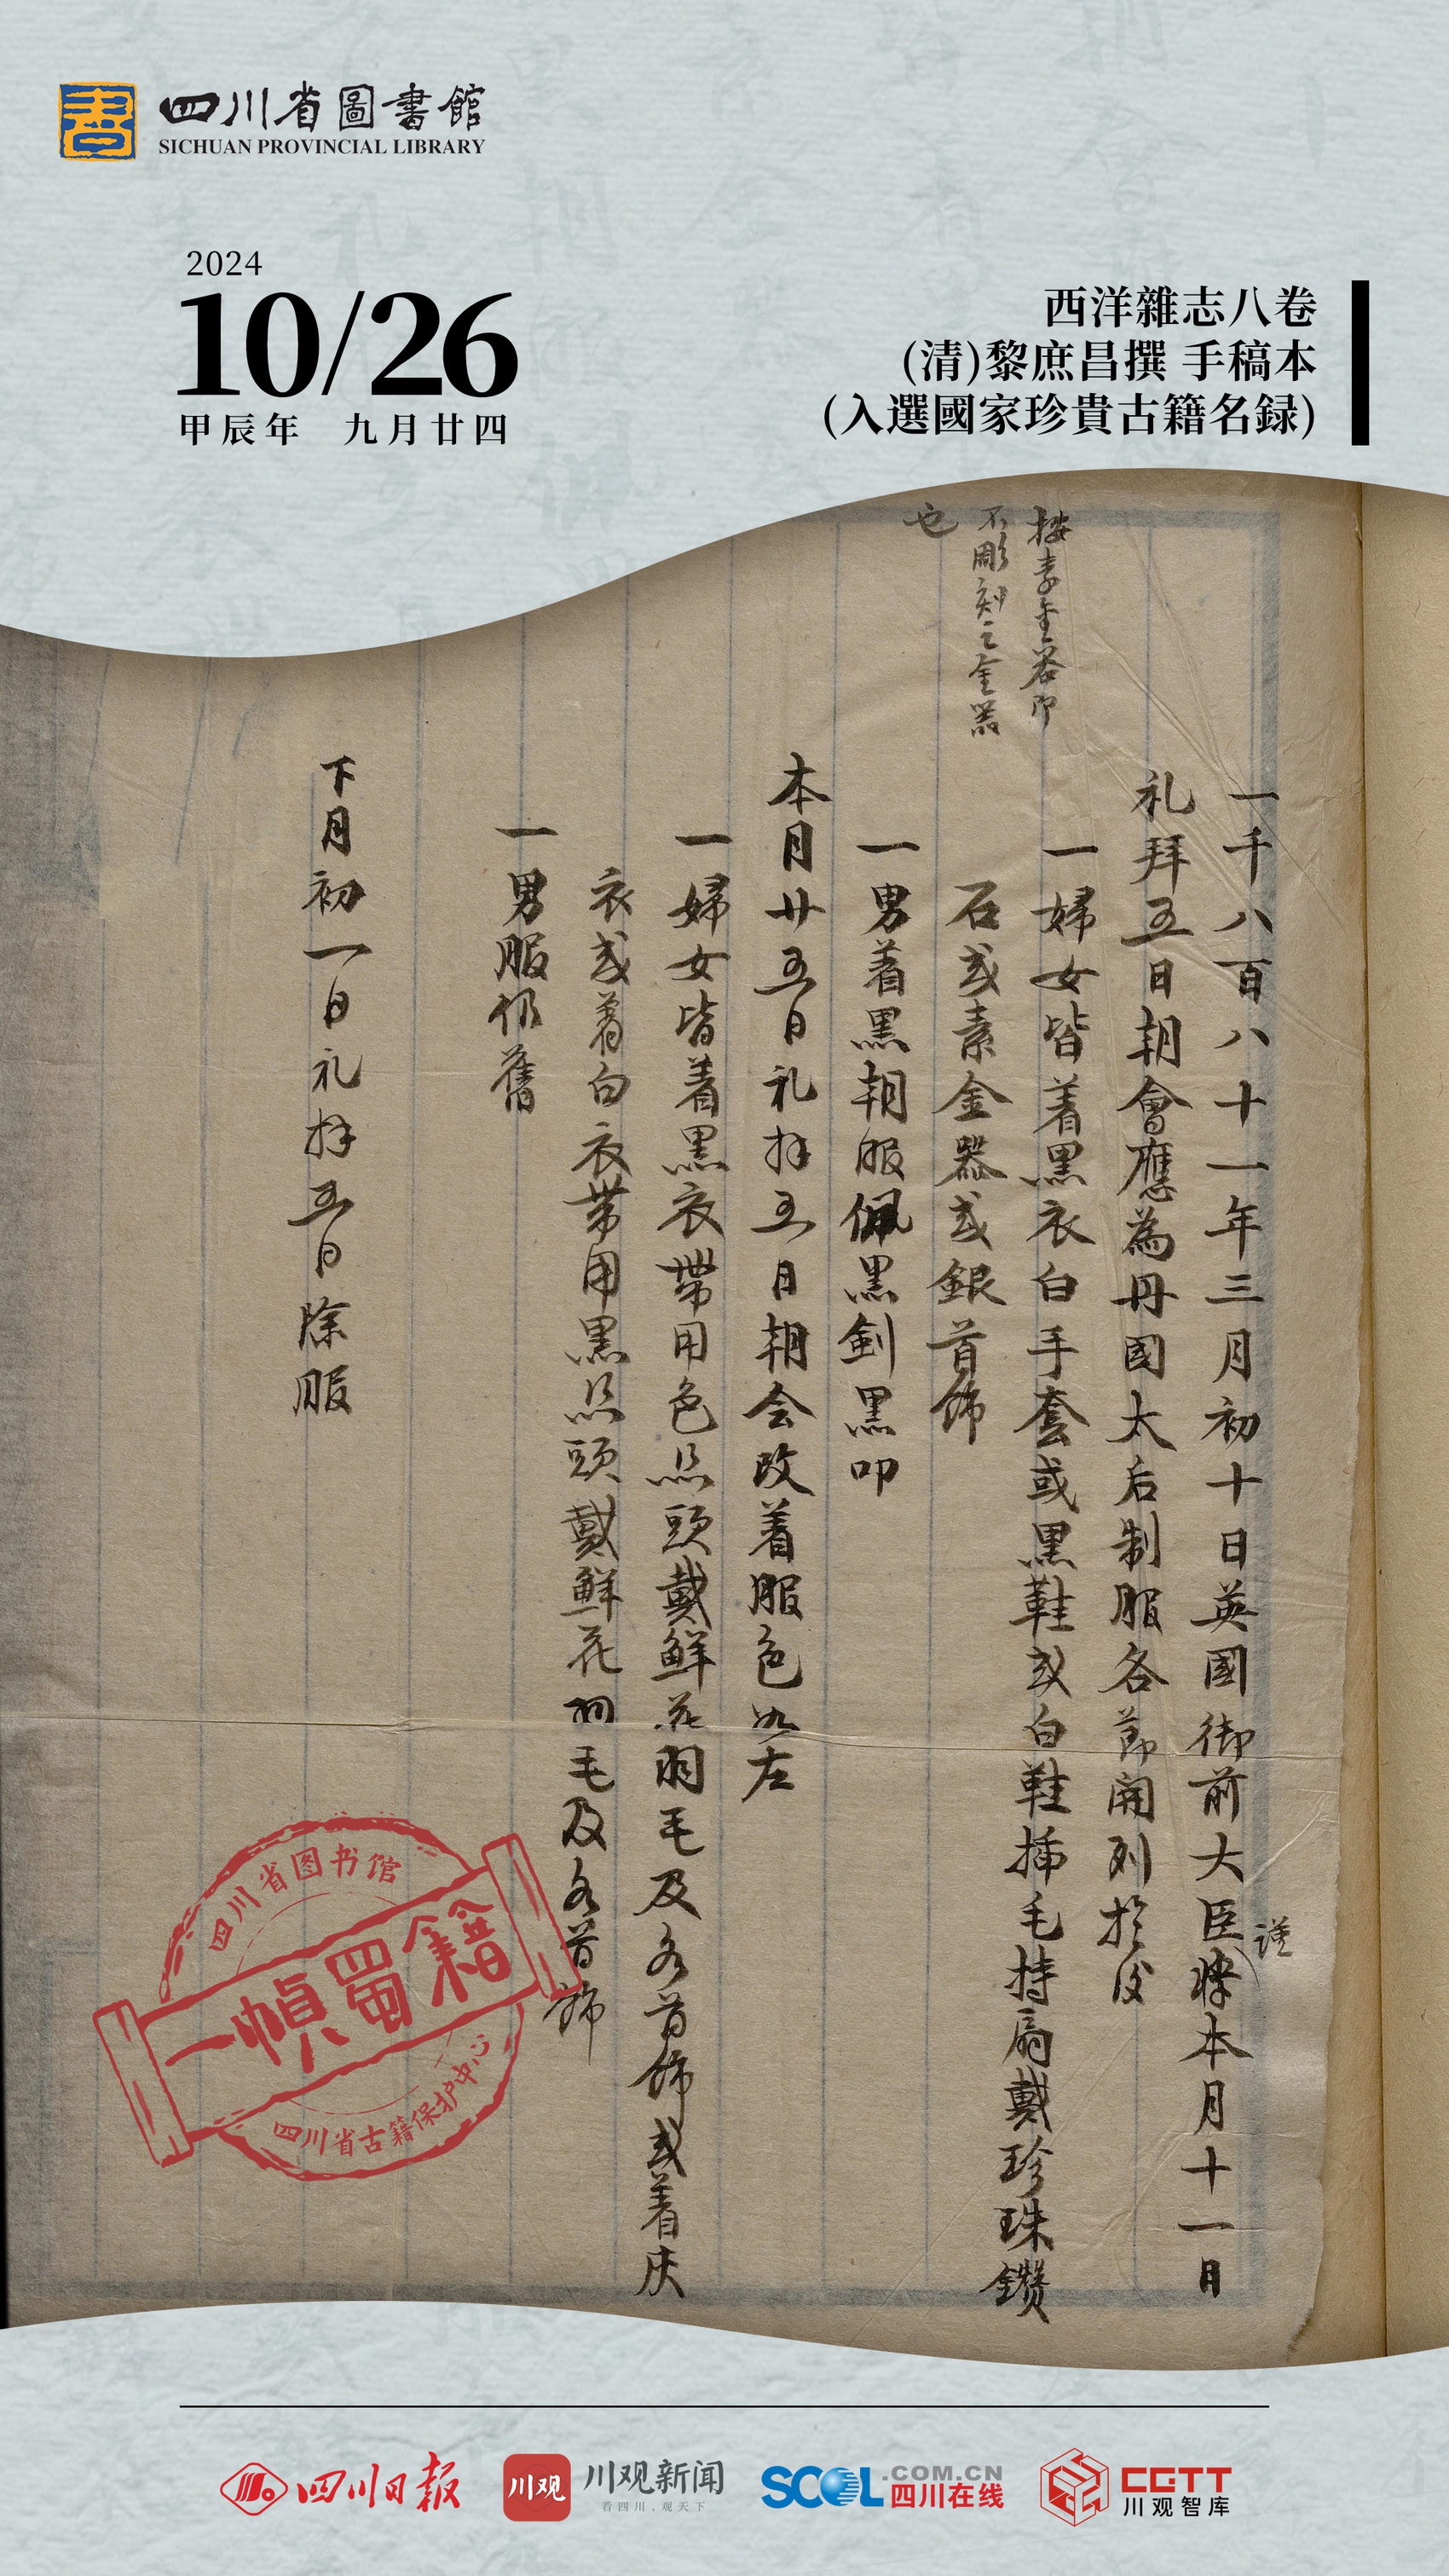 四川省圖書館
SICHUAN PROVINCIAL LIBRARY
2024
10/26
甲辰年 九月廿四
西洋雜志八卷
(清)黎庶昌撰 手稿本
(入選國家珍貴古籍名録)
按素金器即
不彫刻之金器
也
一千八百八十一年三月初十日英國御前大臣謹將本月十一日
礼拜五日朝會應為丹國太后制服各節開列於後
一婦女皆着黑衣白手套或黑鞋或白鞋插毛持扇戴珍珠鑽
石或素金器或銀首飾
一男着黑朝服佩黑劍黑叩
本月廿五日礼拜五日朝会改着服色如左
一婦女皆着黑衣帶用色點頭戴鮮花羽毛及各首飾或着灰
衣或着白衣帶用黑點頭戴鮮花羽毛及各首飾
一男服仍舊
下月初一日礼拜五日除服
四川省图书馆
一幀蜀籍
四川省古籍保护中心
四川日报
川观
川观新闻
看四川，观天下
SCOL.COM.CN
四川在线
CGTT
川观智库